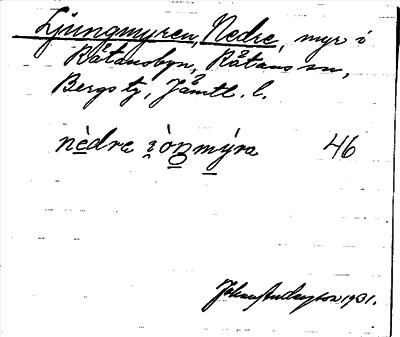 Ljungmyren, Nedre, myr i
Råtansbyn, Råtans sn,
Bergs tg, Jämtl. l.
nèdre i̯òŋmýra 46
Johan Andersson 1931.